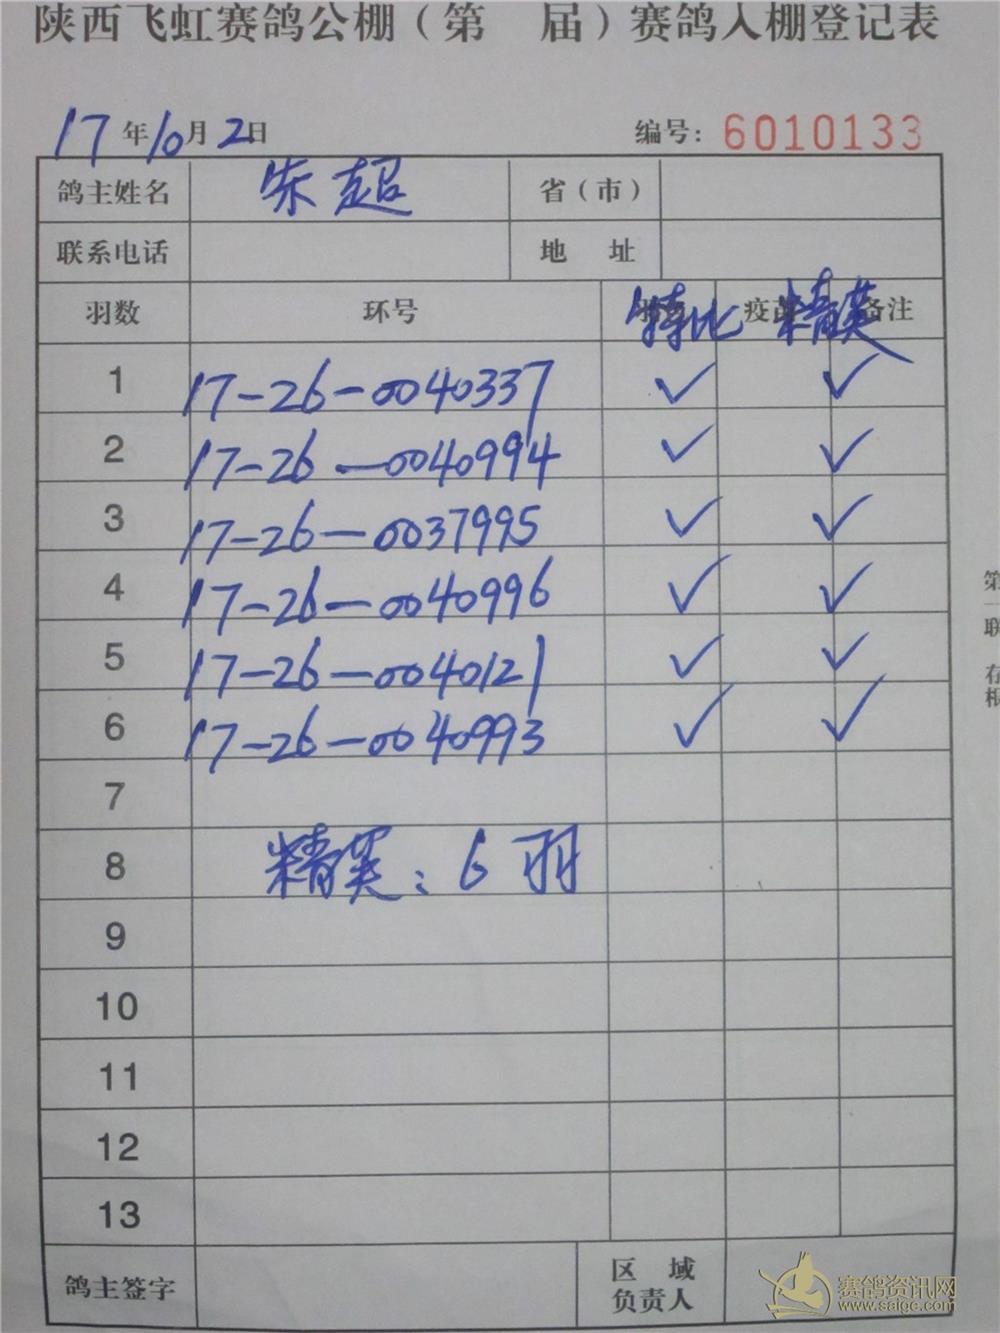 陕西飞虹赛鸽公棚（第 届）赛鸽入棚登记表
17年10月2日 编号: 6010133
鸽主姓名 朱超 省（市）
联系电话 地 址
羽数 环号 特比 疫苗 精英 备注
1 17-26-0040337 ✓ ✓
2 17-26-0040994 ✓ ✓
3 17-26-0037995 ✓ ✓
4 17-26-0040996 ✓ ✓
5 17-26-0040121 ✓ ✓
6 17-26-0040993 ✓ ✓
7
8 精英: 6羽
9
10
11
12
13
鸽主签字 区域负责人
第一联 存根
赛鸽资讯网
www.saige.com